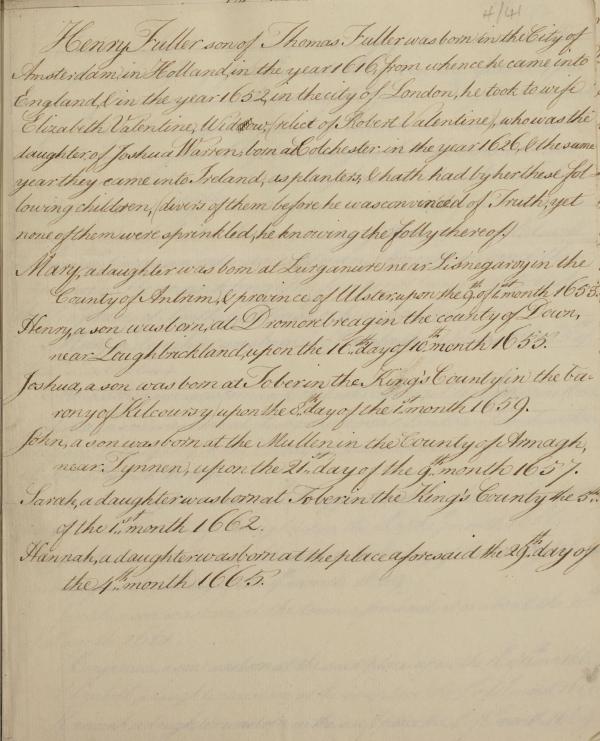 4/41
Henry Fuller son of Thomas Fuller was born in the City of
Amsterdam, in Holland, in the year 1616, from whence he came into
England, & in the year 1652, in the city of London, he took to wife
Elizabeth Valentine, Widow, (relict of Robert Valentine), who was the
daughter of Joshua Warren, born at Colchester in the year 1626, & the same
year they came into Ireland, as planters, & hath had by her these fol
lowing children, (divers of them before he was convinced of Truth, yet
none of them were sprinkled, he knowing the folly thereof.)
Mary, a daughter was born at Lurganure near Lisnegarvy in the
County of Antrim, & province of Ulster upon the 9th of 1st month 1653.
Henry, a son was born, at Dromorebreag in the county of Down,
near Loughbrickland, upon the 16th day of 10th month 1655.
Joshua, a son was born at Tober in the King's County in the ba
rony of Kilcoursy upon the 8th day of the 1st month 1659.
John, a son was born at the Mullen in the County of Armagh,
near Tynnen, upon the 21st day of the 9th month 1657.
Sarah, a daughter was born at Tober in the King's County the 5th
of the 1st month 1662.
Hannah, a daughter was born at the place aforesaid the 29th day of
the 4th month 1665.